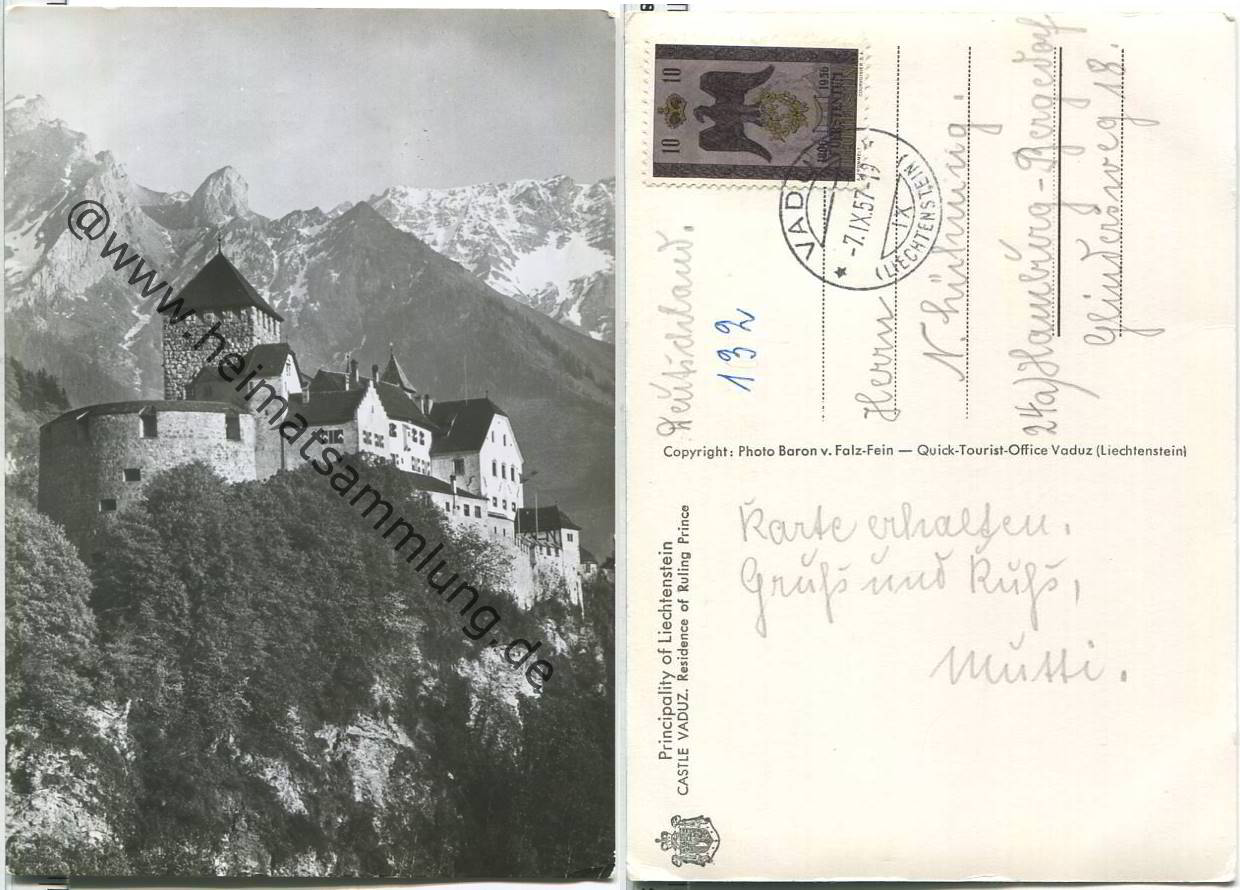 @www.heimatsammlung.de
10 10
1956
FÜRSTENTUM
LIECHTENSTEIN
VADUZ
-7.IX.57-19
IX
(LIECHTENSTEIN)
Deutschland.
132
Herrn
24a) Hamburg-Bergedorf
Glindersweg 18.
Copyright: Photo Baron v. Falz-Fein — Quick-Tourist-Office Vaduz (Liechtenstein)
Principality of Liechtenstein
CASTLE VADUZ. Residence of Ruling Prince
Karte erhalten.
Gruß und Kuß,
Mutti.